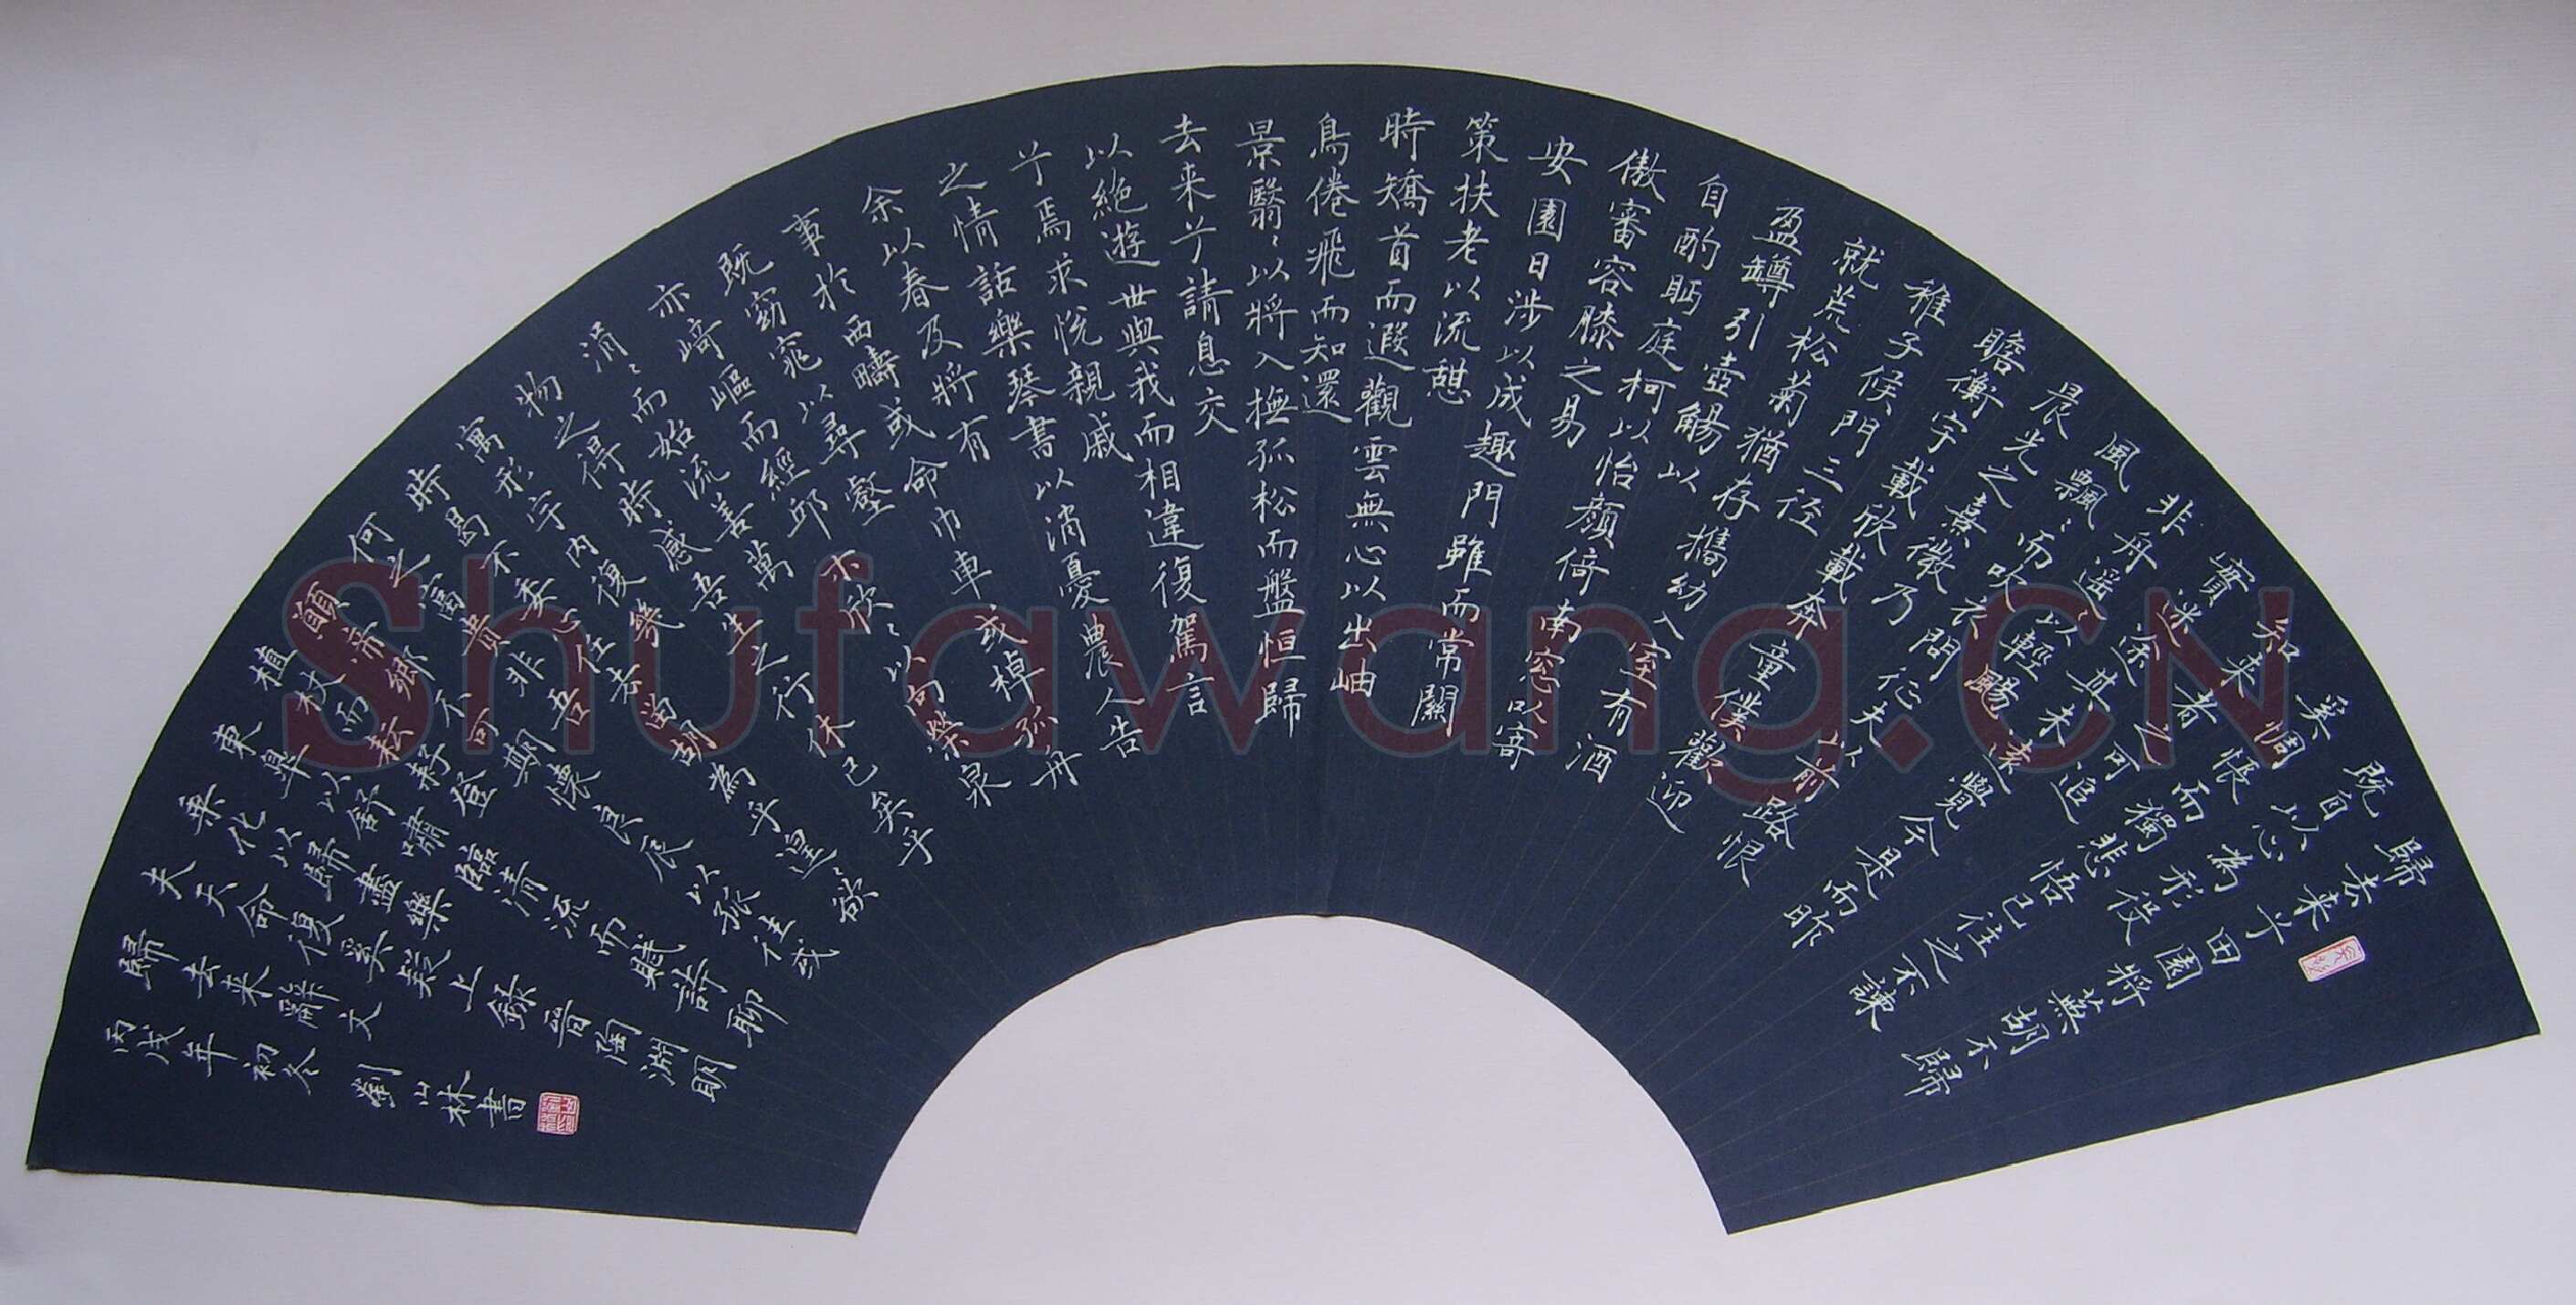 歸去来兮田園將蕪胡不歸
既自以心為形役
奚惆悵而獨悲悟已往之不諫
知来者之可追
實迷途其未遠覺今是而昨
非舟遥、以輕颺
風飄、而吹衣問征夫以前路恨
晨光之熹微乃
瞻衡宇載欣載奔童僕歡迎
稚子候門三徑
就荒松菊猶存攜幼入室有酒
盈罇引壺觴以
自酌眄庭柯以怡顏倚南窓以寄
傲審容膝之易
安園日涉以成趣門雖而常關
策扶老以流憇
時矯首而遐觀雲無心以出岫
鳥倦飛而知還
景翳、以將入撫孤松而盤恒歸
去来兮請息交
以絶遊世與我而相違復駕言
兮焉求悅親戚
之情話樂琴書以消憂農人告
余以春及將有
事於西疇或命巾車或棹孤舟
既窈窕以尋壑
亦崎嶇而經邱木欣、以向榮泉
涓、而始流善萬
物之得時感吾生之行休已矣乎
寓形宇內復幾
時曷不委心任去留胡為乎遑、欲
何之富貴非吾
願帝鄉不可期懷良辰以孤往或
植杖而耘耔登
東皐以舒嘯臨清流而賦詩聊
乗化以歸盡樂
夫天命復奚疑上録晉陶淵明
歸去来辭文
丙戌年初冬劉山林書
Shufawang.CN